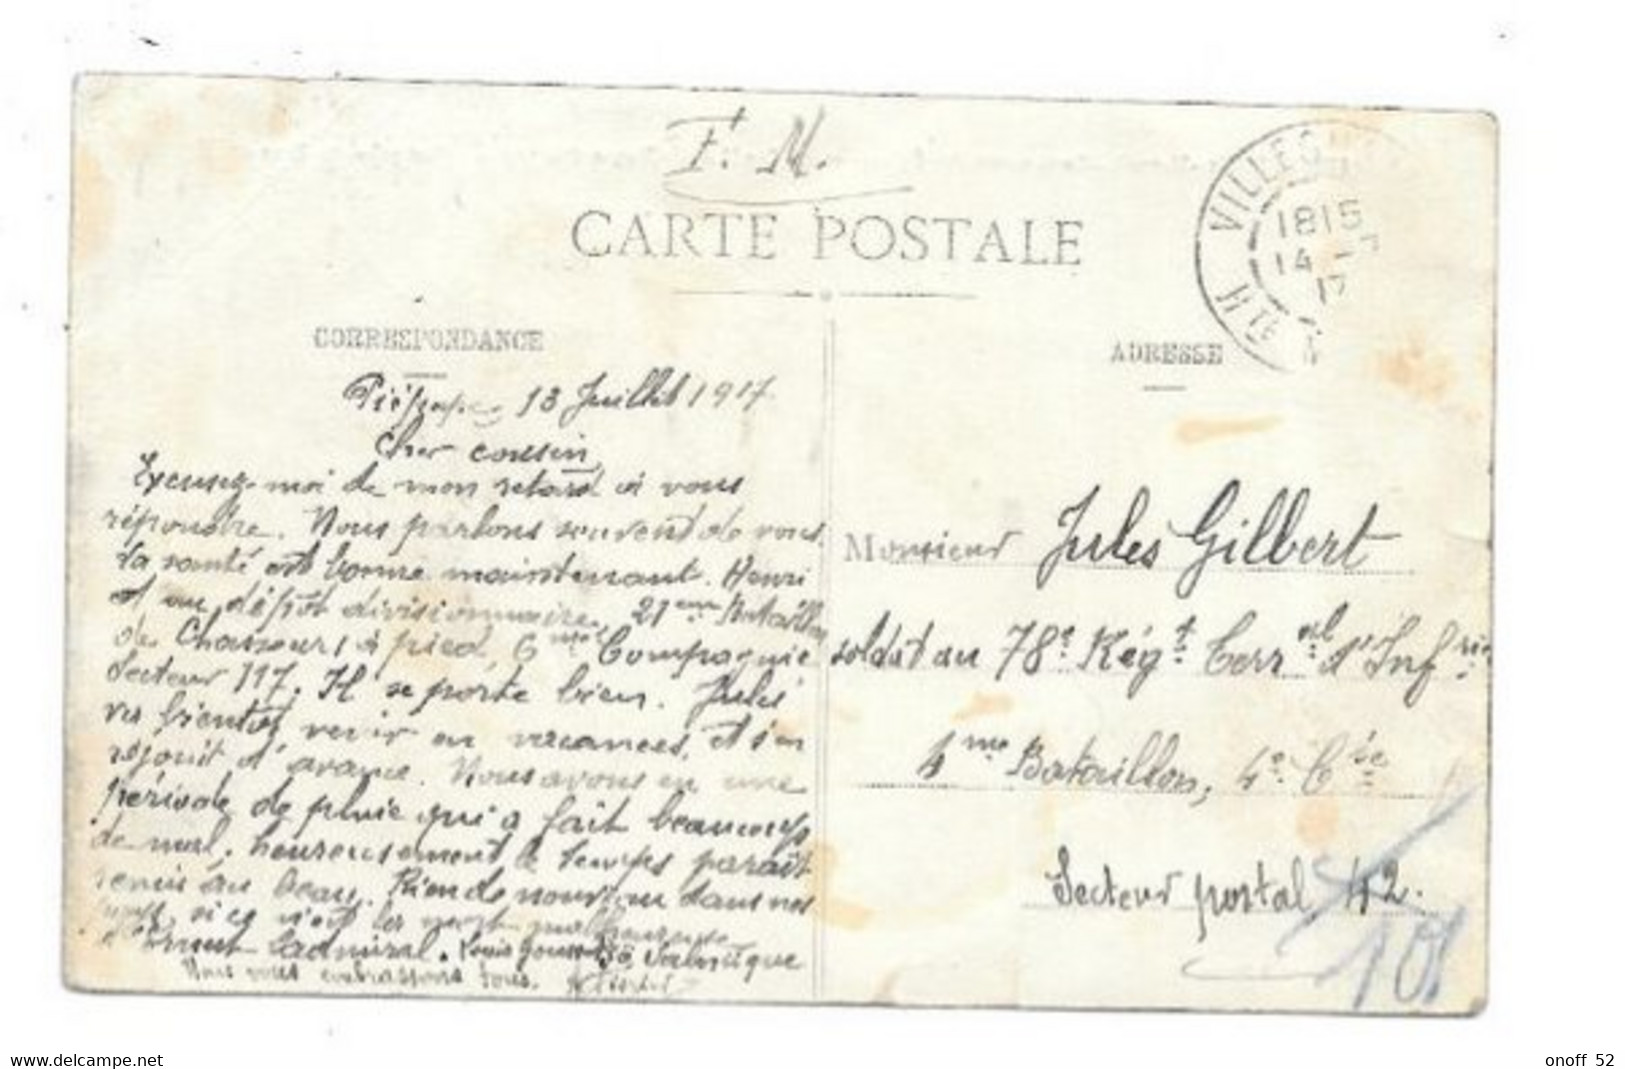 F. M.
CARTE POSTALE
VILLEG
1815
14 - 7
17
Hte
CORRESPONDANCE
ADRESSE
Piépape, 13 Juillet 1917
Cher cousin,
Excusez-moi de mon retard à vous
répondre. Nous parlons souvent de vous.
La santé est bonne maintenant. Henri
est au dépôt divisionnaire, 21eme Bataillon
de Chasseurs à pied, 6eme Compagnie
Secteur 117. Il se porte bien. Jules
va bientôt venir en vacances, et s'en
réjouit d'avance. Nous avons eu une
période de pluie qui a fait beaucoup
de mal, heureusement le temps paraît
remis au beau. Rien de nouveau dans nos
pays, si ce n'est la mort malheureuse
d'Ernest Ladmiral. Louis à Salonique
Nous vous embrassons tous.
Monsieur Jules Gilbert
soldat au 78e Régt Terral d'Infrie
4me Bataillon, 4e Cie
Secteur postal 42.
101
www.delcampe.net
onoff 52